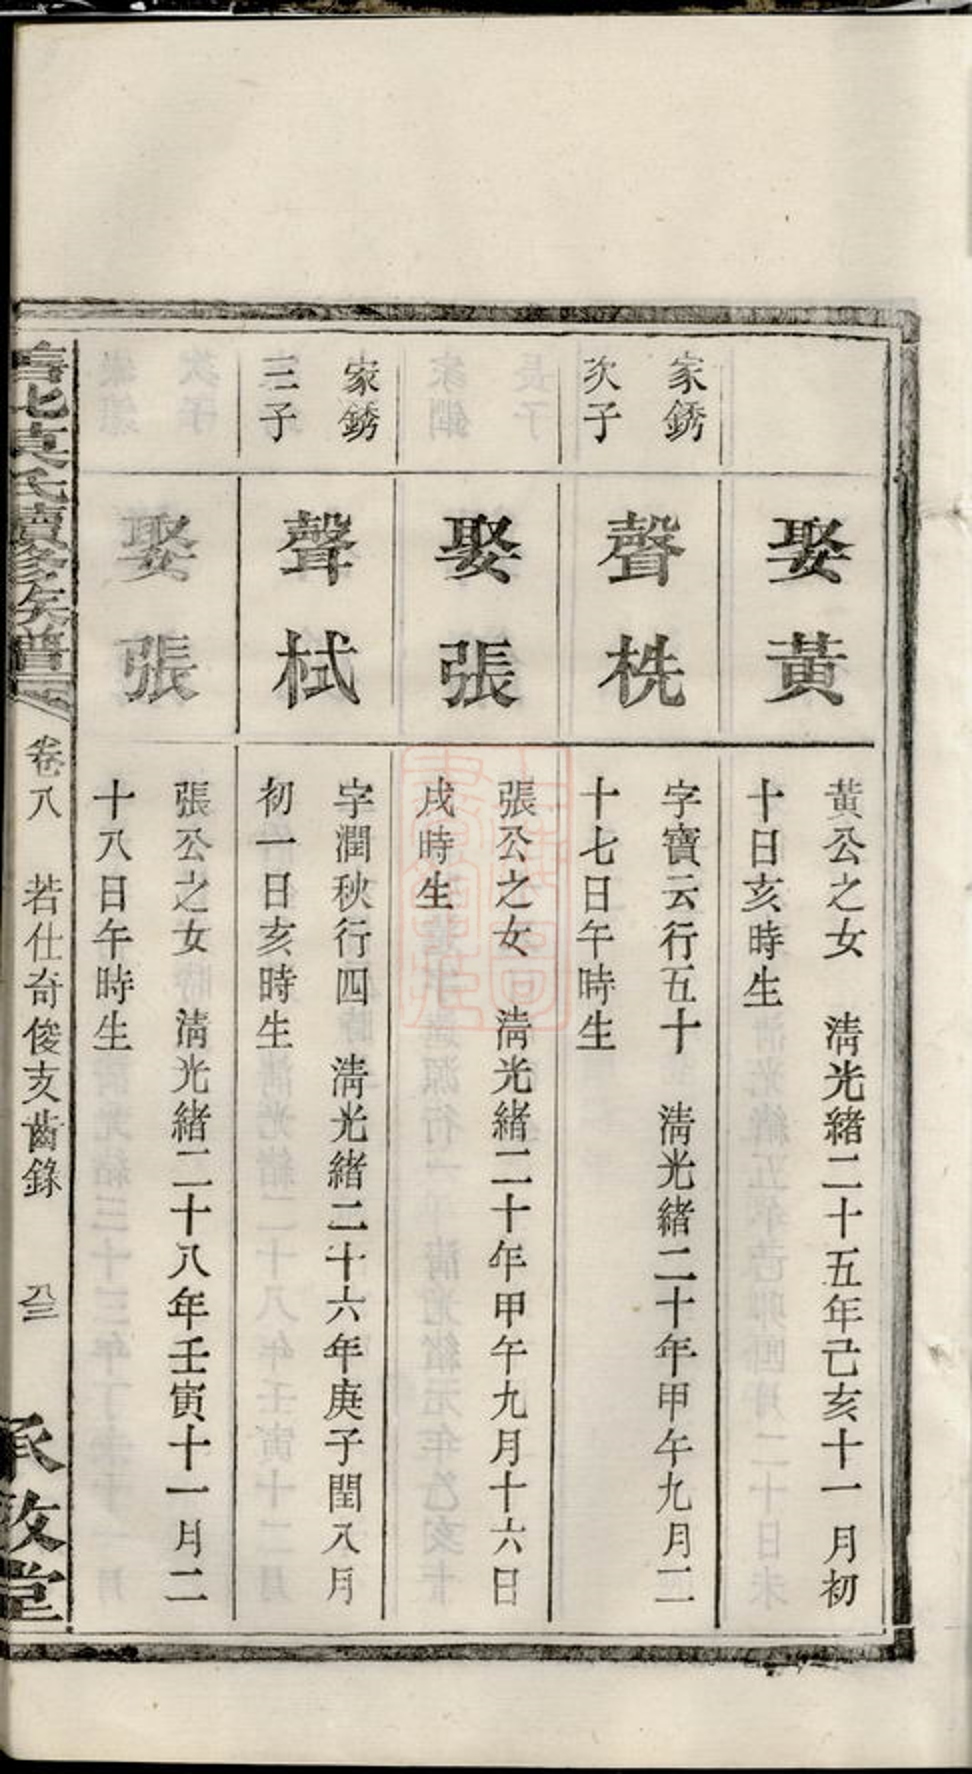 娶黃
黃公之女 淸光緒二十五年己亥十一月初
十日亥時生
家銹
次子
聲栊
字寶云行五十 淸光緒二十年甲午九月二
十七日午時生
娶張
張公之女 淸光緒二十年甲午九月十六日
戌時生
家銹
三子
聲栻
字潤秋行四 淸光緒二十六年庚子閏八月
初一日亥時生
娶張
張公之女 淸光緒二十八年壬寅十一月二
十八日午時生
氏續修族譜
卷八 若仕奇俊支齒錄 八三
堂